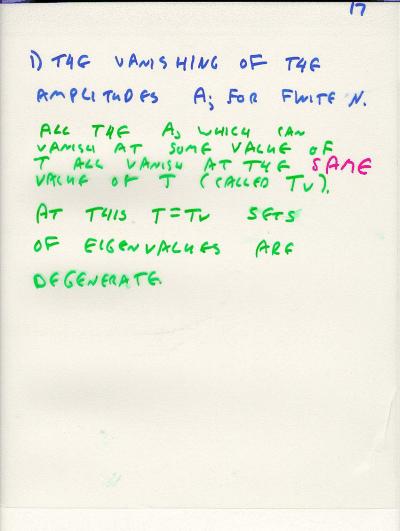 17
1) THE VANISHING OF THE
AMPLITUDES Aj FOR FINITE N.
ALL THE Aj WHICH CAN
VANISH AT SOME VALUE OF
T ALL VANISH AT THE SAME
VALUE OF T (CALLED TV).
AT THIS T=TV SETS
OF EIGENVALUES ARE
DEGENERATE.